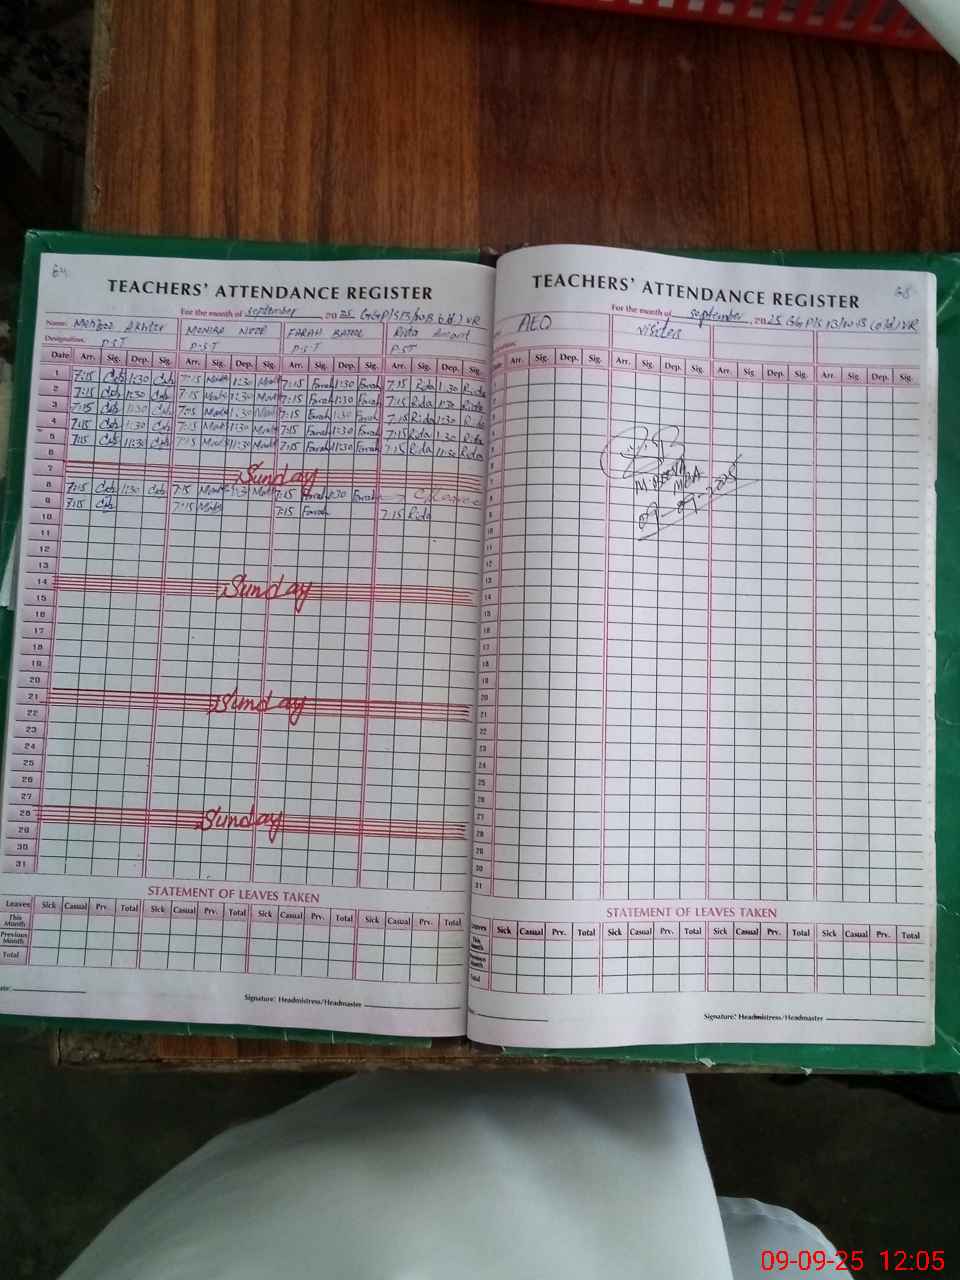 64
TEACHERS' ATTENDANCE REGISTER
For the month of september, 2025
Name: Akhter MONIBA NOOR FARAH BATOOL Rida
Designation: P.S.T P.S.T P.S.T P.S.T
Date Arr. Sig. Dep. Sig. Arr. Sig. Dep. Sig. Arr. Sig. Dep. Sig. Arr. Sig. Dep. Sig.
1 7:15 1:30 7:15 1:30 7:15 Farah 1:30 Farah 7:15 Rida 1:30 Rida
2 7:15 11:30 7:15 1:30 7:15 Farah 11:30 Farah 7:15 Rida 11:30 Rida
3 7:15 11:30 7:15 1:30 7:15 Farah 1:30 Farah 7:15 Rida 1:30 Rida
4 7:15 1:30 7:15 11:30 7:15 Farah 11:30 Farah 7:15 Rida 1:30 Rida
5 7:15 11:30 7:15 11:30 7:15 Farah 11:30 Farah 7:15 Rida 11:30 Rida
6
7 Sunday
8 7:15 1:30 7:15 1:30 7:15 Farah 1:30 Farah
9 7:15 7:15 7:15 Farah 7:15 Rida
10
11
12
13
14 Sunday
15
16
17
18
19
20
21 Sunday
22
23
24
25
26
27
28 Sunday
29
30
31
STATEMENT OF LEAVES TAKEN
Leaves Sick Casual Prv. Total Sick Casual Prv. Total Sick Casual Prv. Total Sick Casual Prv. Total
This Month
Previous Month
Total
Signature: Headmistress/Headmaster
TEACHERS' ATTENDANCE REGISTER
For the month of september, 2025
AEO visiter
Arr. Sig. Dep. Sig. Arr. Sig. Dep. Sig. Arr. Sig. Dep. Sig. Arr. Sig. Dep. Sig.
1
2
3
4
5
6
7
8
9
10
11
12
13
14
15
16
17
18
19
20
21
22
23
24
25
26
27
28
29
30
31
MBA
09-09-2025
STATEMENT OF LEAVES TAKEN
Leaves Sick Casual Prv. Total Sick Casual Prv. Total Sick Casual Prv. Total Sick Casual Prv. Total
This Month
Previous Month
Total
Signature: Headmistress/Headmaster
09-09-25 12:05